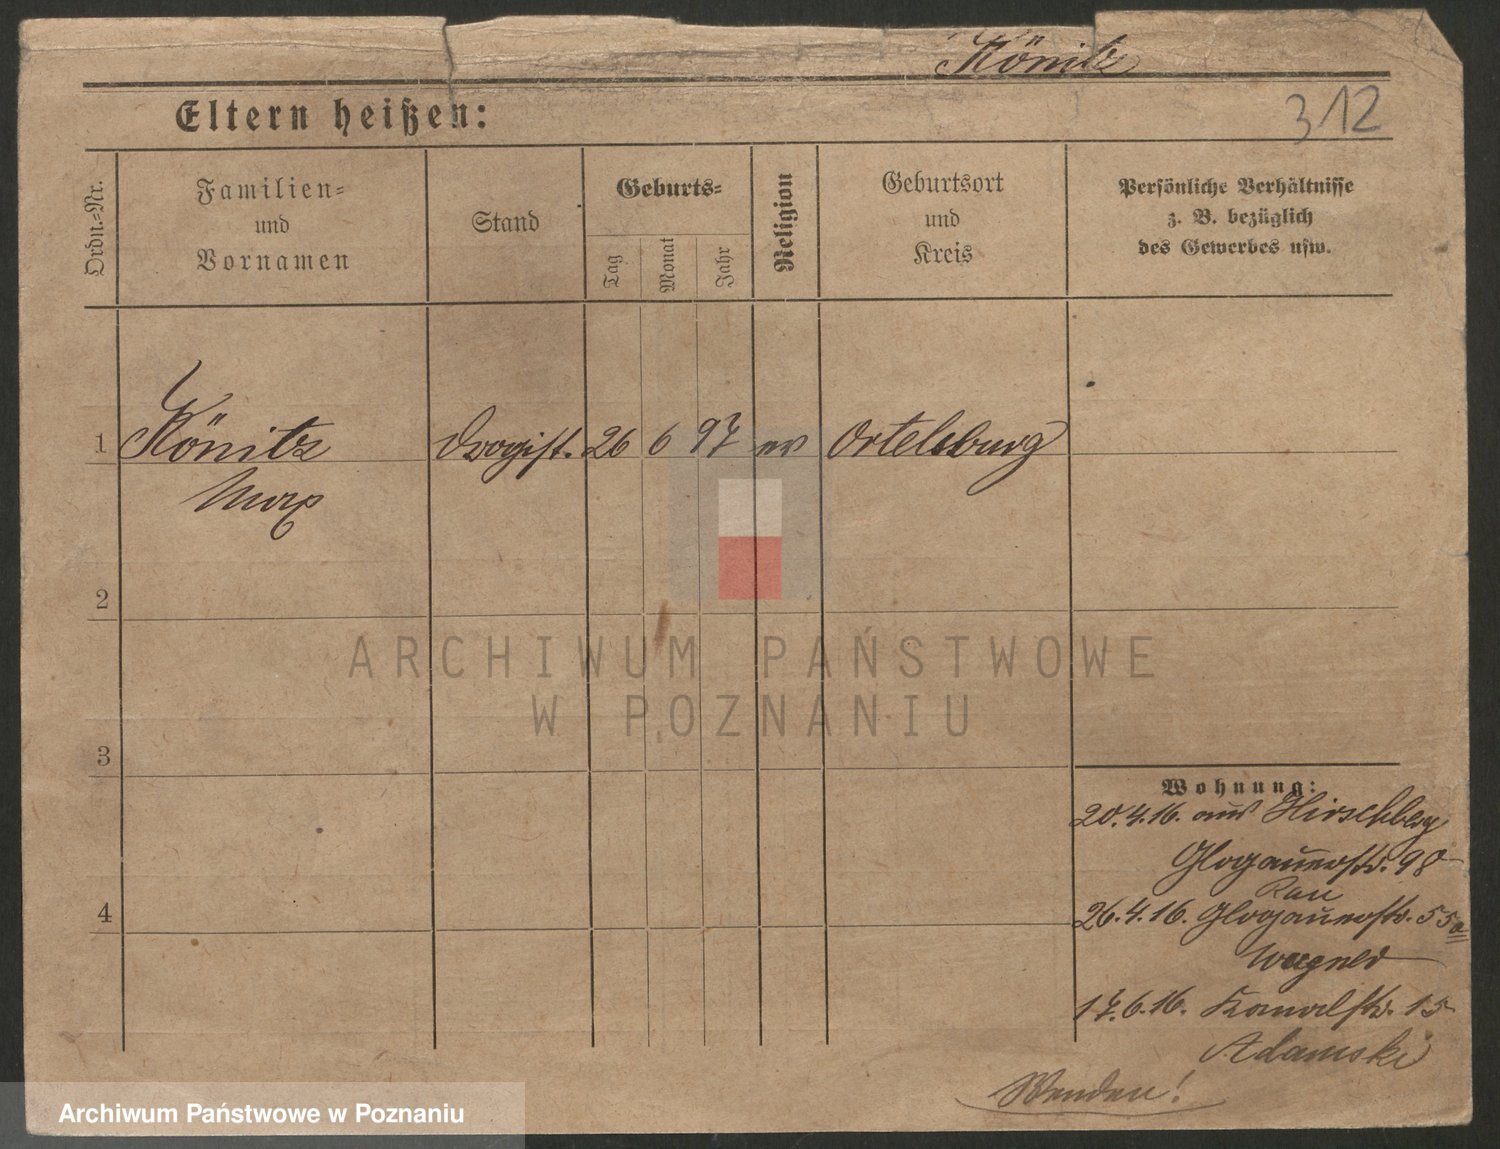 Könitz
Eltern heißen:
312
Ordn.-Nr.
Familien-
und
Vornamen
Stand
Geburts-
Tag
Monat
Jahr
Religion
Geburtsort
und
Kreis
Persönliche Verhältnisse
z. B. bezüglich
des Gewerbes usw.
1 Könitz Drogist. 26 6 97 ev Ortelsburg
Max
2
3
4
Wohnung:
20.4.16. aus Hirschberg
Glogauerstr. 98
Rau
26.4.16. Glogauerstr. 55a
Wagner
17.6.16. Kanalstr. 15
Adamski
Wenden!
ARCHIWUM PAŃSTWOWE
W POZNANIU
Archiwum Państwowe w Poznaniu